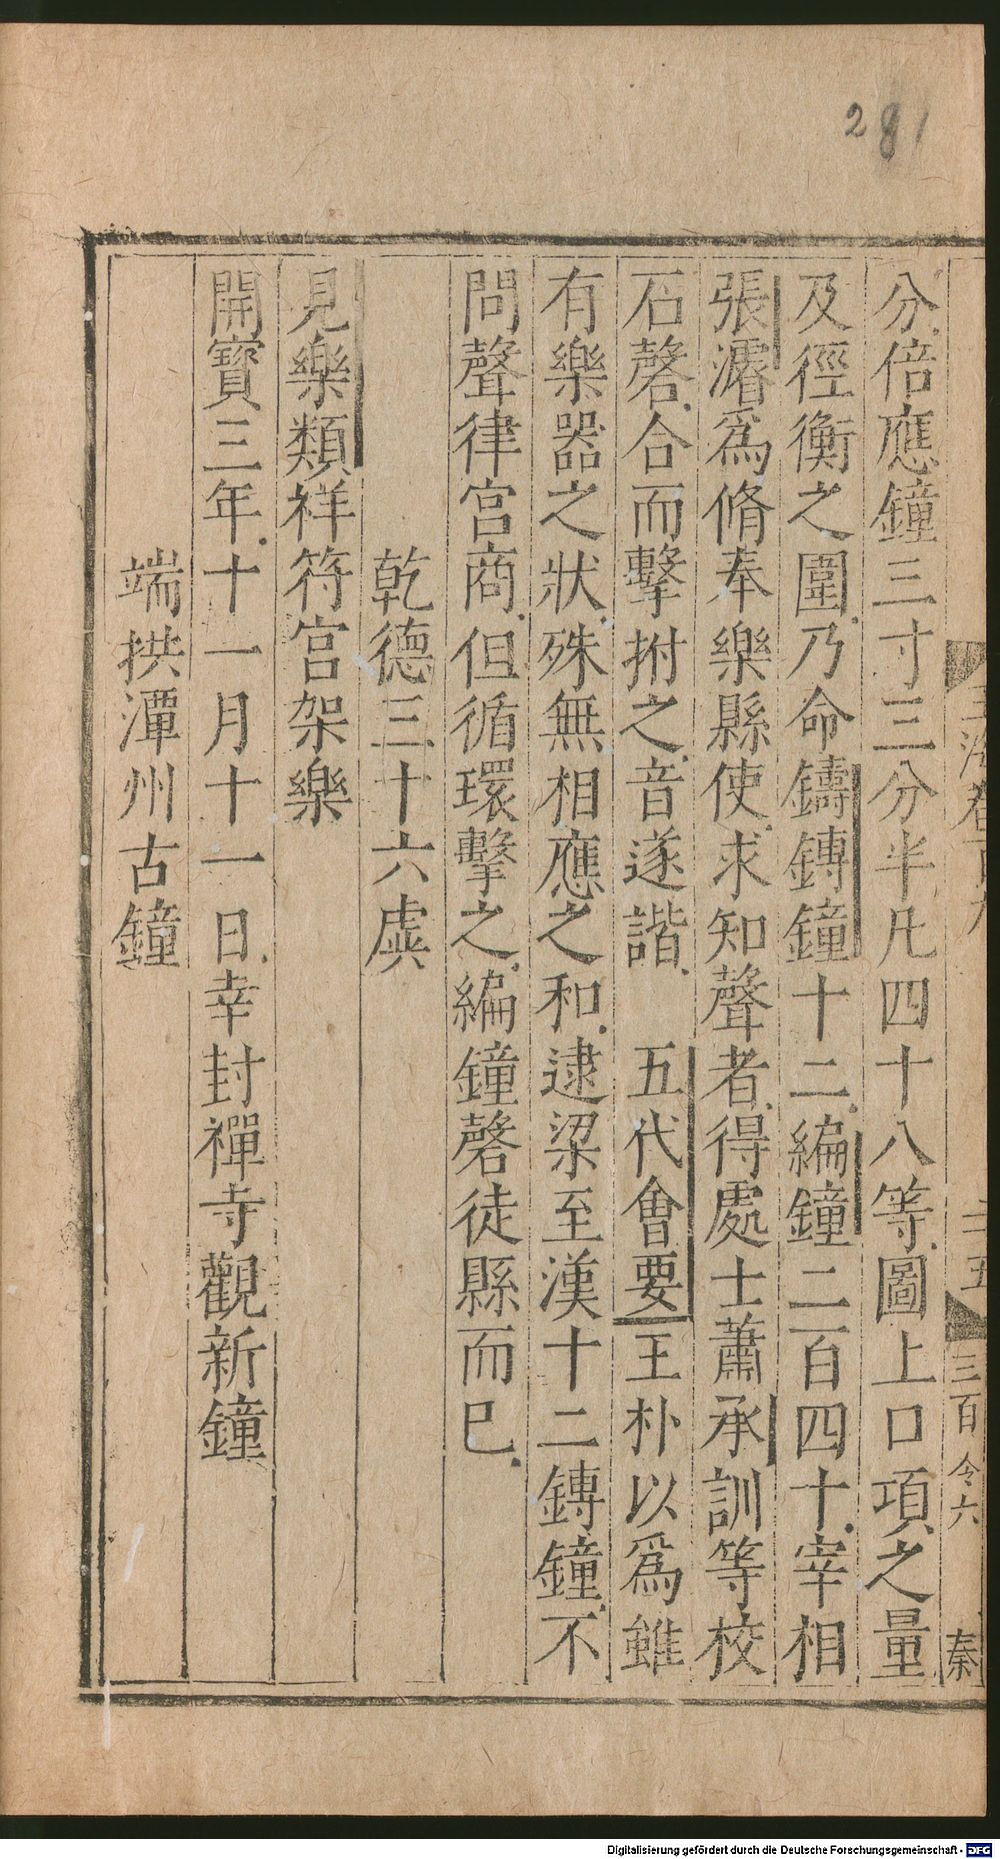 281
玉海卷百九
二十五
三百令六
秦
分倍應鐘三寸三分半凡四十八等圖上口項之量
及徑衡之圍乃命鑄鎛鐘十二編鐘二百四十宰相
張濬爲脩奉樂縣使求知聲者得處士蕭承訓等校
石磬合而擊拊之音遂諧 五代會要王朴以爲雖
有樂器之狀殊無相應之和逮梁至漢十二鎛鐘不
問聲律宫商但循環擊之編鐘磬徒縣而已
乾德三十六虡
見樂類祥符宫架樂
開寶三年十一月十一日幸封禪寺觀新鐘
端拱潭州古鐘
Digitalisierung gefördert durch die Deutsche Forschungsgemeinschaft - DFG